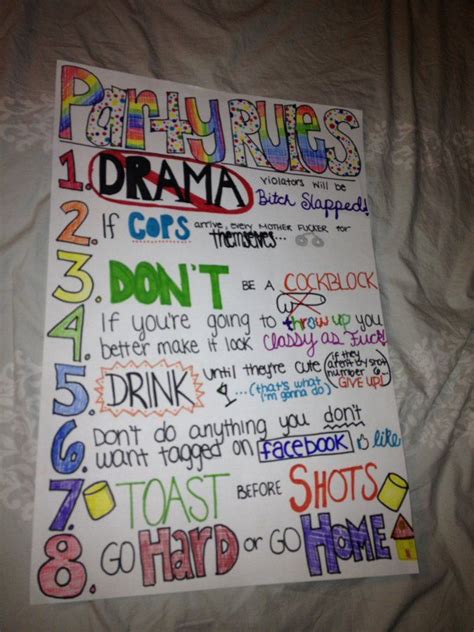 Party Rules
1. DRAMA violators will be
Bitch Slapped!
2. If COPS arrive, every MOTHER FUCKER for
themselves...
3. DON'T BE A COCKBLOCK
4. If you're going to throw up you
better make it look classy as Fuck!
5. DRINK until they're cute (if they
aren't by shot
number 6...
GIVE UP!)
...(that's what
i'm gonna do)
6. Don't do anything you don't
want tagged on facebook like
7. TOAST BEFORE SHOTS
8. GO HARD or GO HOME